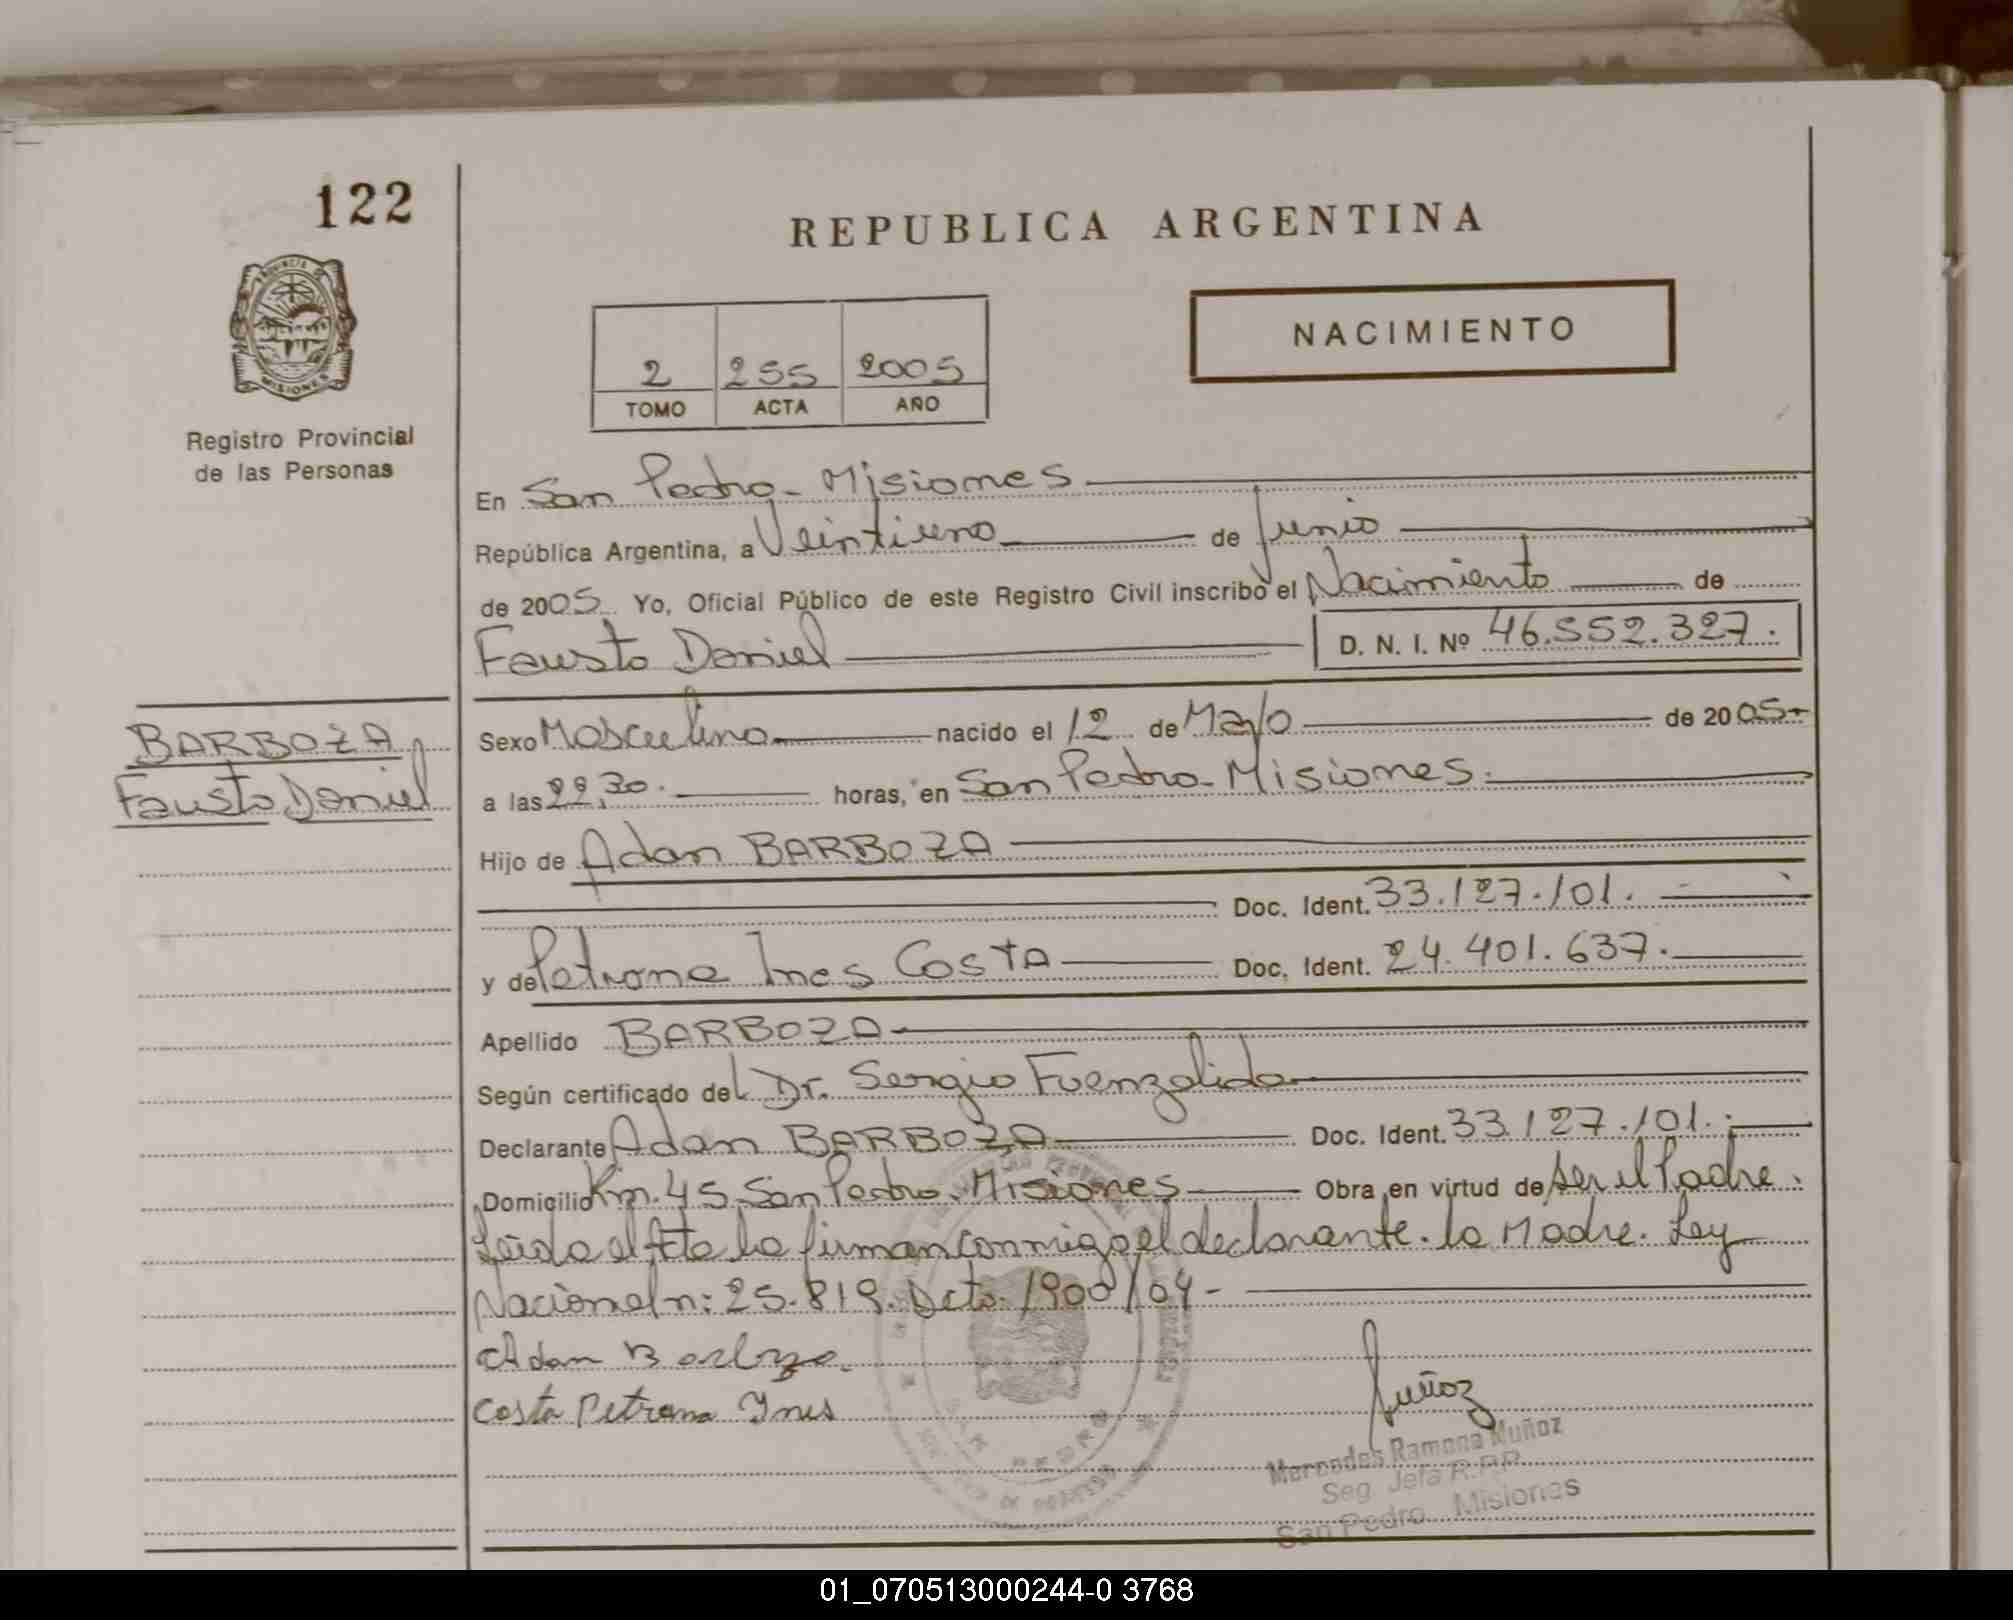 122
REPUBLICA ARGENTINA
NACIMIENTO
2 255 2005
TOMO ACTA AÑO
PROVINCIA DE
MISIONES
Registro Provincial
de las Personas
En San Pedro - Misiones
República Argentina, a Veintiuno de Junio
de 2005 Yo, Oficial Público de este Registro Civil inscribo el Nacimiento de
Fausto Daniel D. N. I. Nº 46.552.327.
BARBOZA
Fausto Daniel
Sexo Masculino nacido el 12 de Mayo de 2005-
a las 22,30. horas, en San Pedro - Misiones.
Hijo de Adan BARBOZA
Doc. Ident. 33.127.101.
y de Petrona Ines COSTA Doc. Ident. 24.401.637.
Apellido BARBOZA
Según certificado del Dr. Sergio Fuenzalida
Declarante Adan BARBOZA Doc. Ident. 33.127.101.
Domicilio Km. 45 San Pedro. Misiones Obra en virtud de ser el Padre.
Leida el Acta la firman conmigo el declarante. la Madre. Ley
Nacional n: 25.819. Dcto. 1900/04-
Adan Barboza.
Costa Petrona Ynes
Muñoz
Mercedes Ramona Muñoz
Seg. Jefa R.P.P.
San Pedro Misiones
SAN PEDRO
01_070513000244-0 3768